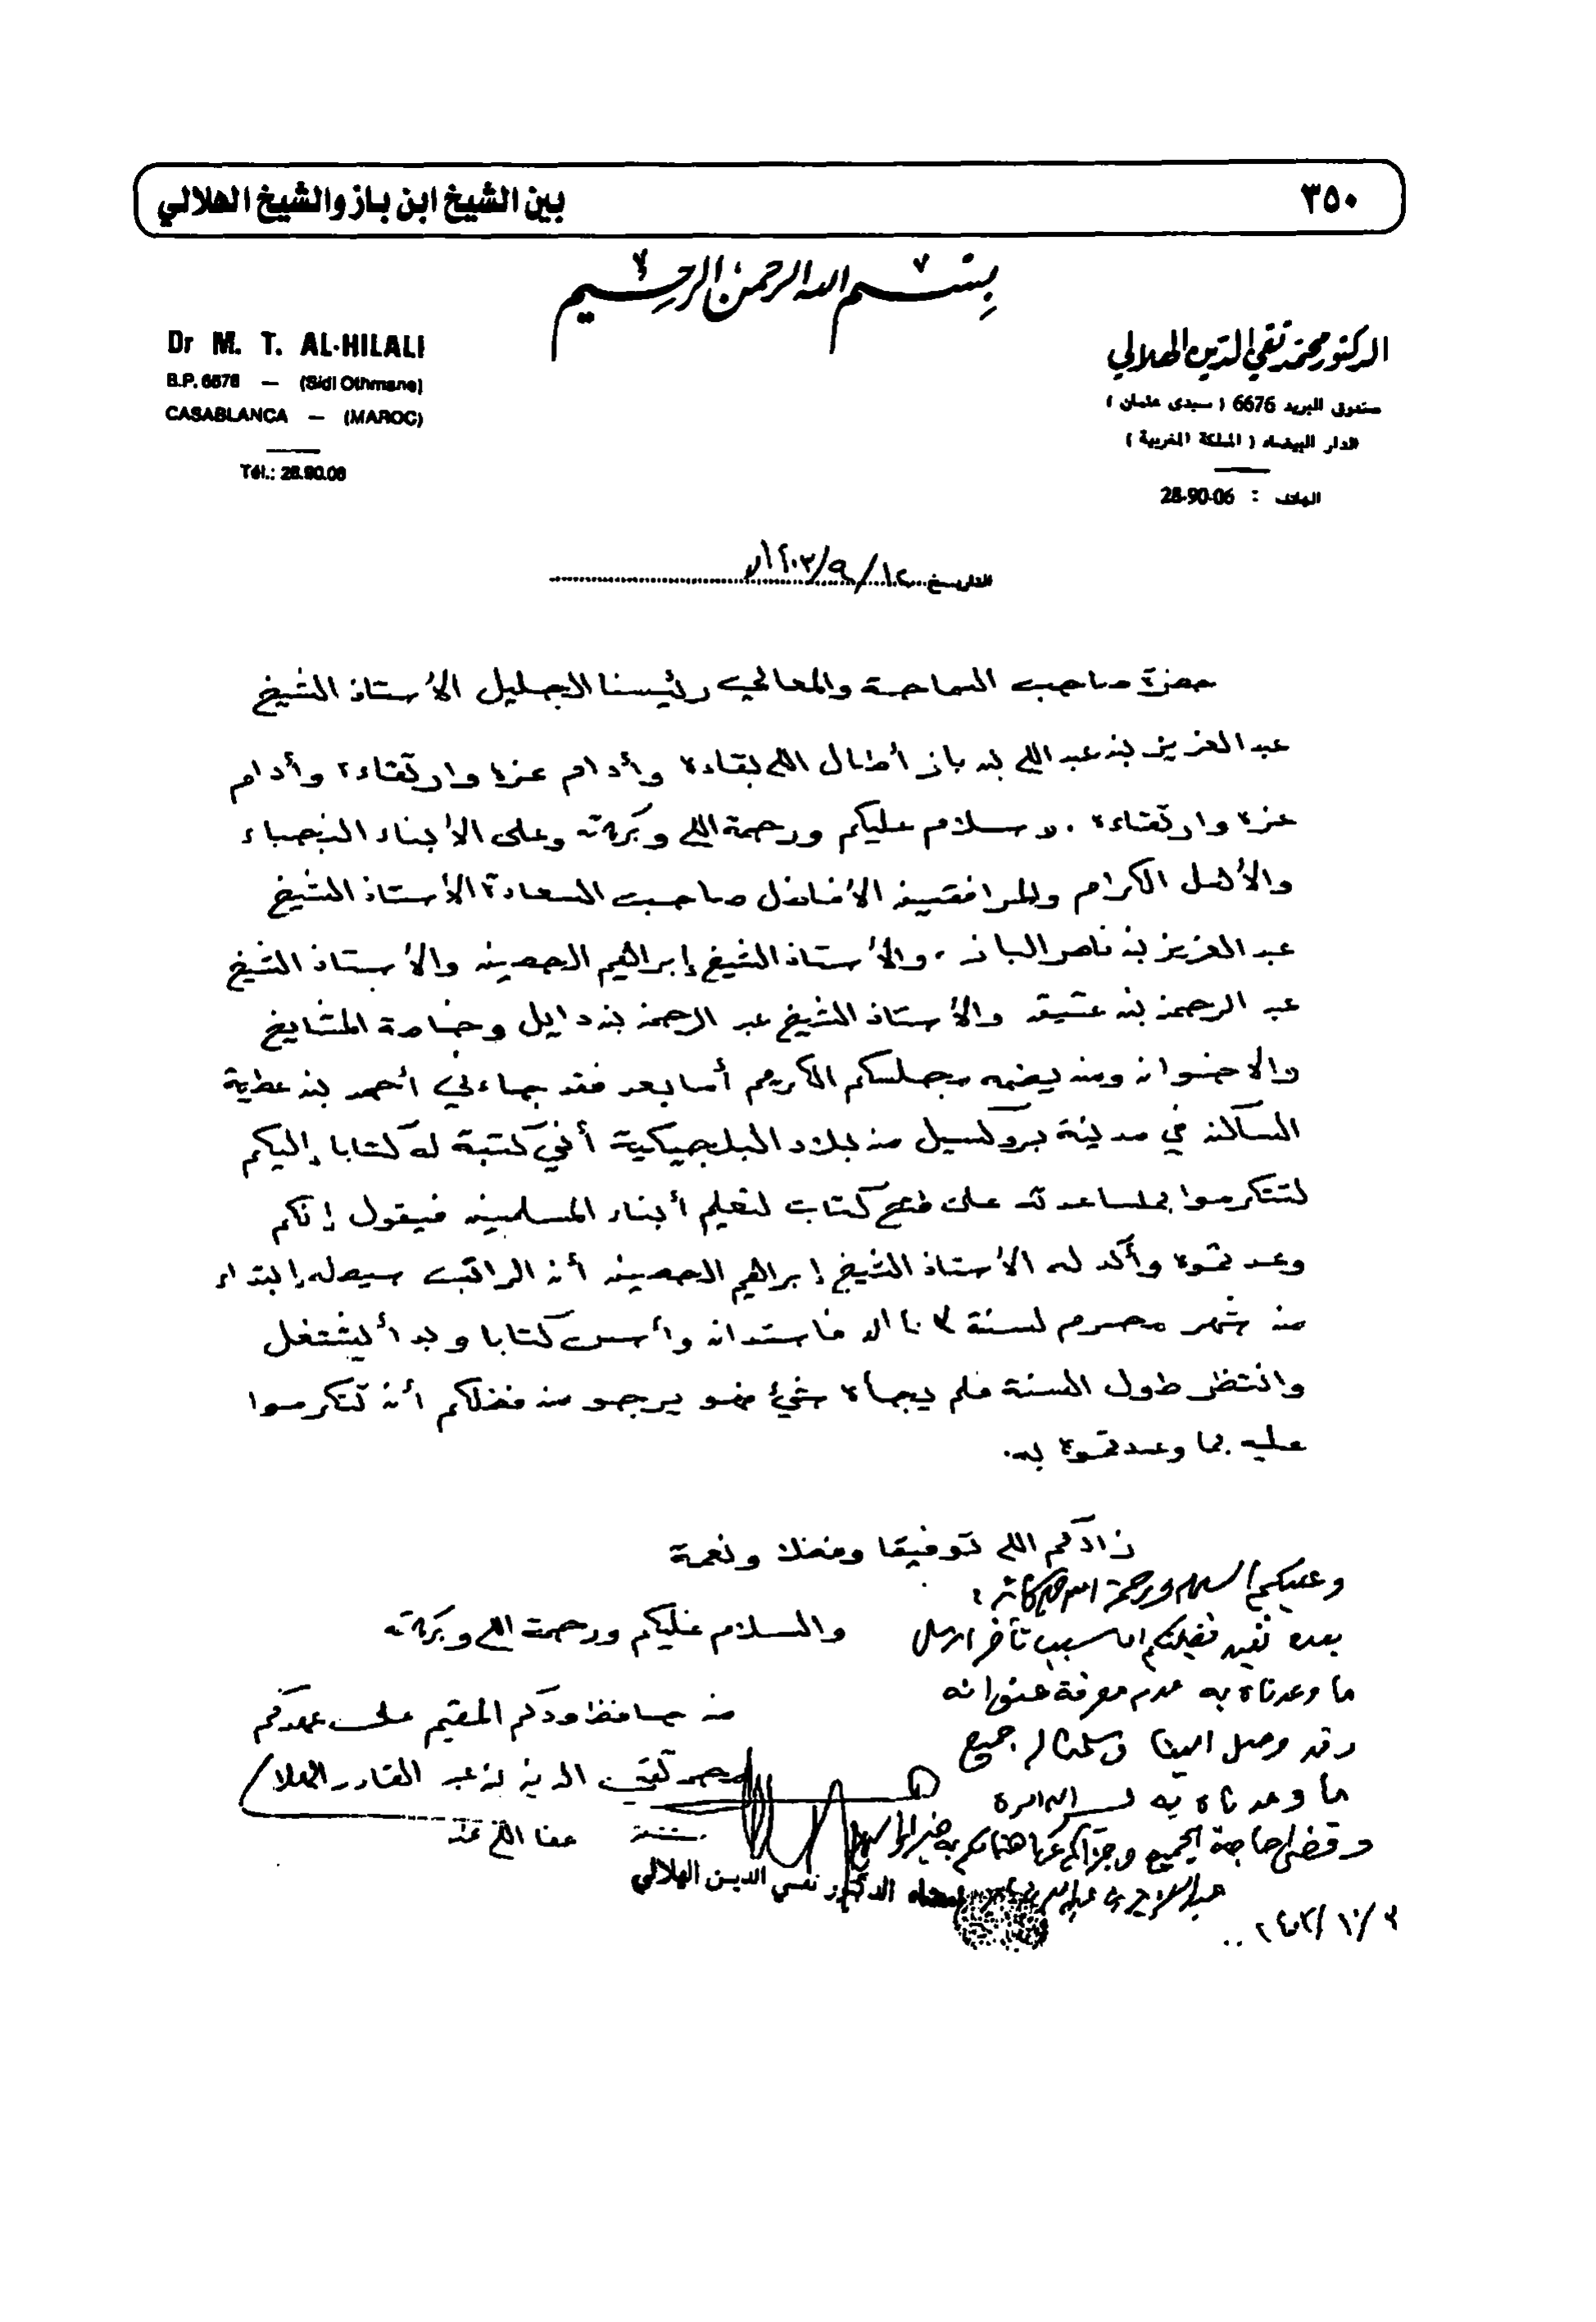 ٣٥٠
بين الشيخ ابن باز والشيخ الهلالي
بسم الله الرحمن الرحيم
الدكتور محمد تقي الدين الهلالي
صندوق البريد 6676 ( سيدي عثمان )
الدار البيضاء ( المملكة المغربية )
الهاتف : 28-90-06
Dr M. T. AL-HILALI
B.P. 6676 — (Sidi Othmane)
CASABLANCA — (MAROC)
Tél.: 28.90.06
التاريخ ١٢/٩/١٤٠٣هـ
حضرة صاحب السماحة والمعالي رئيسنا الجليل الأستاذ الشيخ
عبد العزيز بن عبد الله بن باز أطال الله بقاءه وأدام عزه وارتقاءه وأدام
عزه وارتقاءه . سلام عليكم ورحمة الله وبركاته وعلى الأبناء النجباء
والأهل الكرام والمرافقين الأفاضل صاحب السعادة الأستاذ الشيخ
عبد العزيز بن ناصر الباز ، والأستاذ الشيخ إبراهيم الحصين والأستاذ الشيخ
عبد الرحمن بن عتيق والأستاذ الشيخ عبد الرحمن بن دايل وخاصة المشايخ
والاخوان ومن يضمه مجلسكم الكريم أما بعد فقد جاءني أحمد بن عطية
الساكن في مدينة بروكسيل من بلاد البلجيكية أني كتبة له كتابا إليكم
لتتكرموا بمساعدته على فتح كتاب لتعليم أبناء المسلمين فيقول إنكم
وعدتموه وأكد له الأستاذ الشيخ إبراهيم الحصين أن الراتب سيصله إبتداء
من شهر محرم لسنة ١٤٠٣هـ فاستدان وأسس كتابا وبدأ يشتغل
وانتظر طول السنة فلم يجأه شيئ فهو يرجو من فضلكم أن تتكرموا
عليه بما وعدتموه به.
زادكم الله توفيقا وفضلا ونعمة
والسلام عليكم ورحمت الله وبركاته
من حافظ ودكم المقيم على عهدكم
محمد تقي الدين بن عبد القادر الهلالي
عفا الله عنه
امضاء الدكتور تقي الدين الهلالي
وعليكم السلام ورحمة الله وبركاته ،
بعده نفيد فضيلتكم أن سبب تأخر ارسال
ما وعدناه به عدم معرفة عنوانه
وقد وصل الينا وسلمنا له جميع
ما وعدناه به
وقضى حاجة الجميع وجزاكم عن اهتمامكم به خيرا
عبد العزيز بن عبد الله بن باز
٣/١٠/١٤٠٣